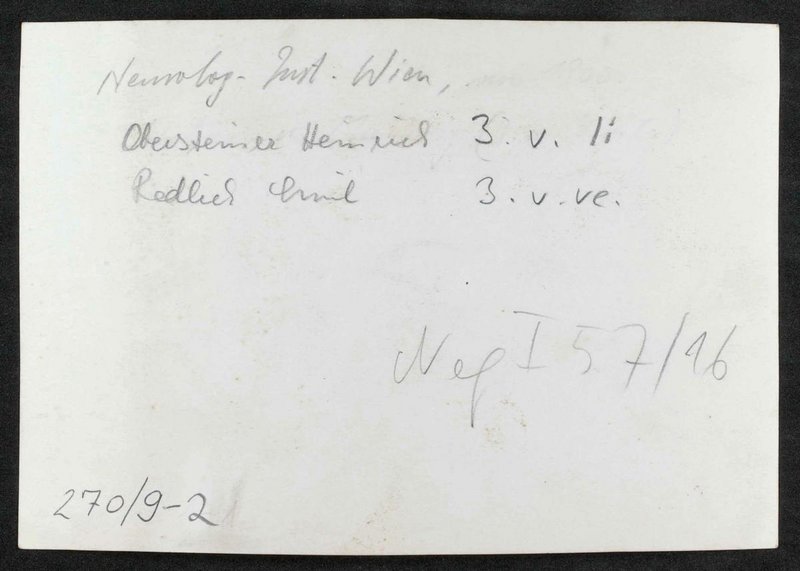 Neurolog. Inst. Wien,
Obersteiner Heinrich 3. v. li
Redlich Emil 3. v. re.
Neg I 57/16
270/9-2